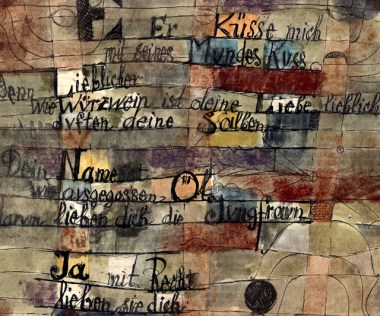 Er Küsse mich
mit seines Mundes Kuss
Denn Lieblicher
wie Würzwein ist deine Liebe lieblich
duften deine Salben
Dein Name ist
wie ausgegossen Öl
darum lieben dich die Jungfraun
Ja mit Recht
lieben sie dich